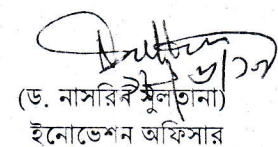 (ড. নাসরিন সুলতানা)
ইনোভেশন অফিসার